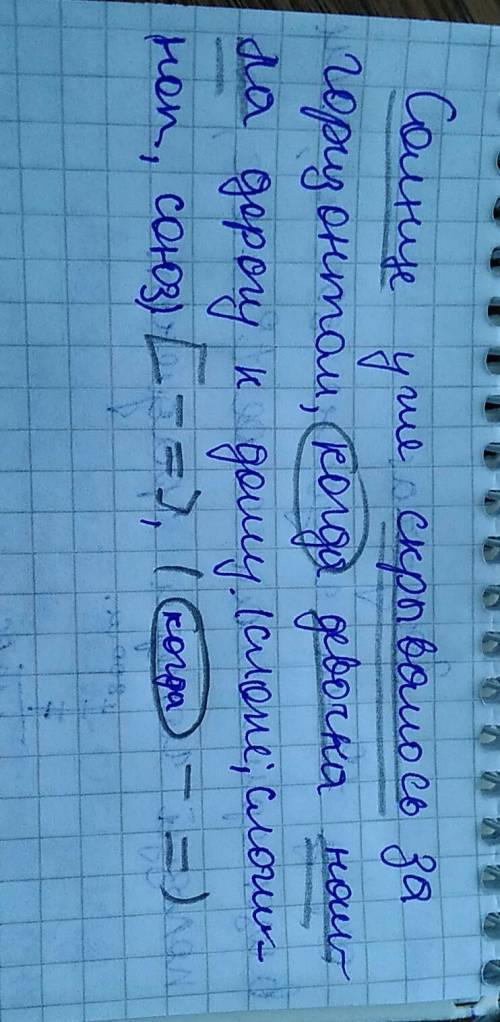 Солнце уже скрывалось за
горизонтом, когда девочка наш-
ла дорогу к дому. (сложн; сложн-
поп, союз) [− =], (когда − =)